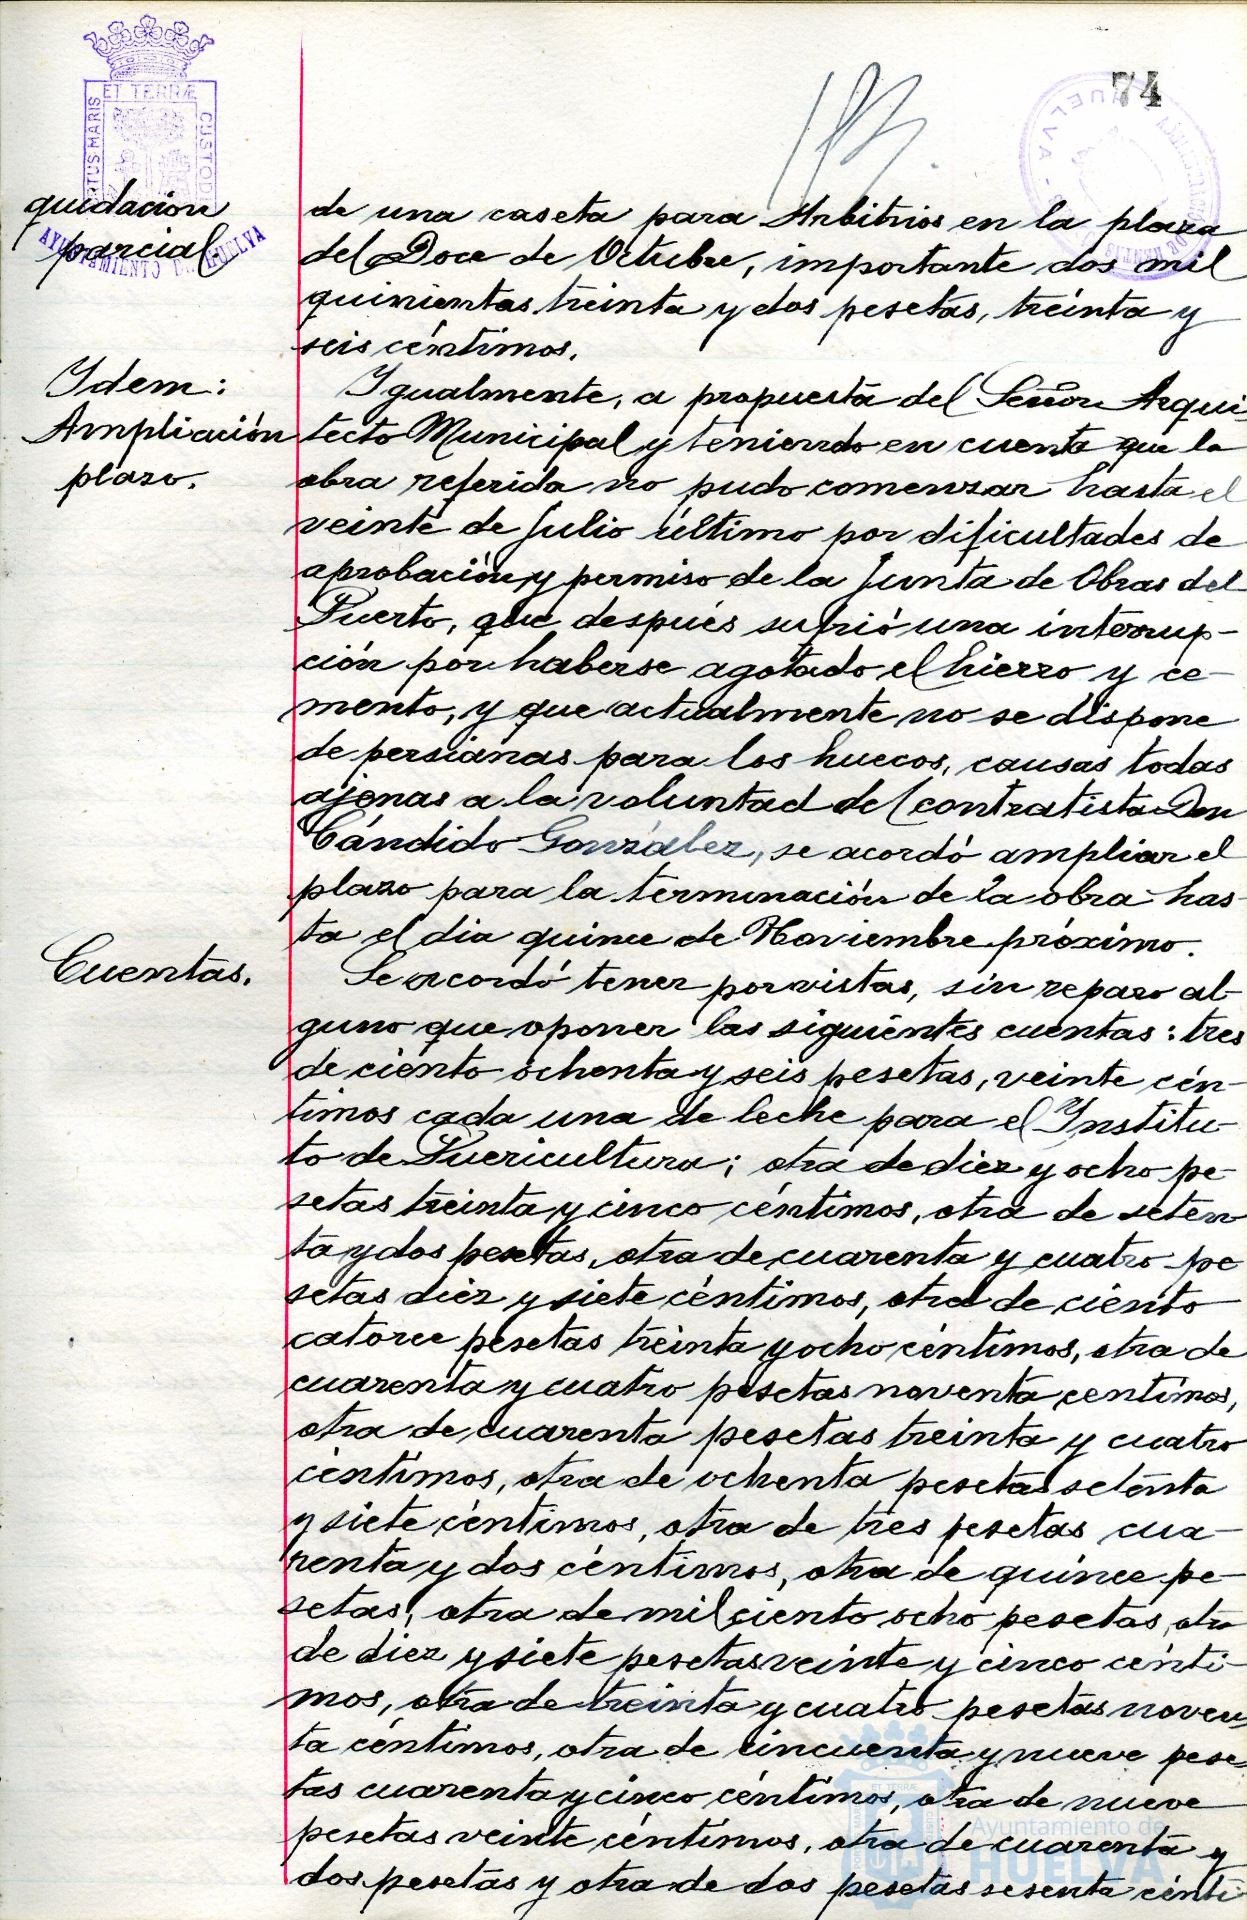 74
ET TERRÆ
PORTUS MARIS
CUSTODIA
AYUNTAMIENTO DE HUELVA
HUELVA
quidación
parcial.
de una caseta para Arbitrios en la plaza
del Doce de Octubre, importante dos mil
quinientas treinta y dos pesetas, treinta y
seis céntimos.
Idem:
Ampliación
plazo.
Igualmente, a propuesta del Señor Arqui-
tecto Municipal y teniendo en cuenta que la
obra referida no pudo comenzar hasta el
veinte de Julio último por dificultades de
aprobación y permiso de la Junta de Obras del
Puerto, que después sufrió una interrup-
ción por haberse agotado el hierro y ce-
mento, y que actualmente no se dispone
de persianas para los huecos, causas todas
ajenas a la voluntad del contratista Don
Cándido González, se acordó ampliar el
plazo para la terminación de la obra has-
ta el dia quince de Noviembre próximo.
Cuentas.
Se acordó tener por vistas, sin reparo al-
guno que oponer las siguientes cuentas: tres
de ciento ochenta y seis pesetas, veinte cén-
timos cada una de leche para el Institu-
to de Puericultura; otra de diez y ocho pe-
setas treinta y cinco céntimos, otra de seten
ta y dos pesetas, otra de cuarenta y cuatro pe
setas diez y siete céntimos, otra de ciento
catorce pesetas treinta y ocho céntimos, otra de
cuarenta y cuatro pesetas noventa centimos,
otra de cuarenta pesetas treinta y cuatro
céntimos, otra de ochenta pesetas setenta
y siete céntimos, otra de tres pesetas cua-
renta y dos céntimos, otra de quince pe-
setas, otra de mil ciento ocho pesetas, otra
de diez y siete pesetas veinte y cinco cénti-
mos, otra de treinta y cuatro pesetas noven
ta céntimos, otra de cincuenta y nueve pese
tas cuarenta y cinco céntimos, otra de nueve
pesetas veinte céntimos, otra de cuarenta y
dos pesetas y otra de dos pesetas sesenta cénti
Ayuntamiento de
HUELVA